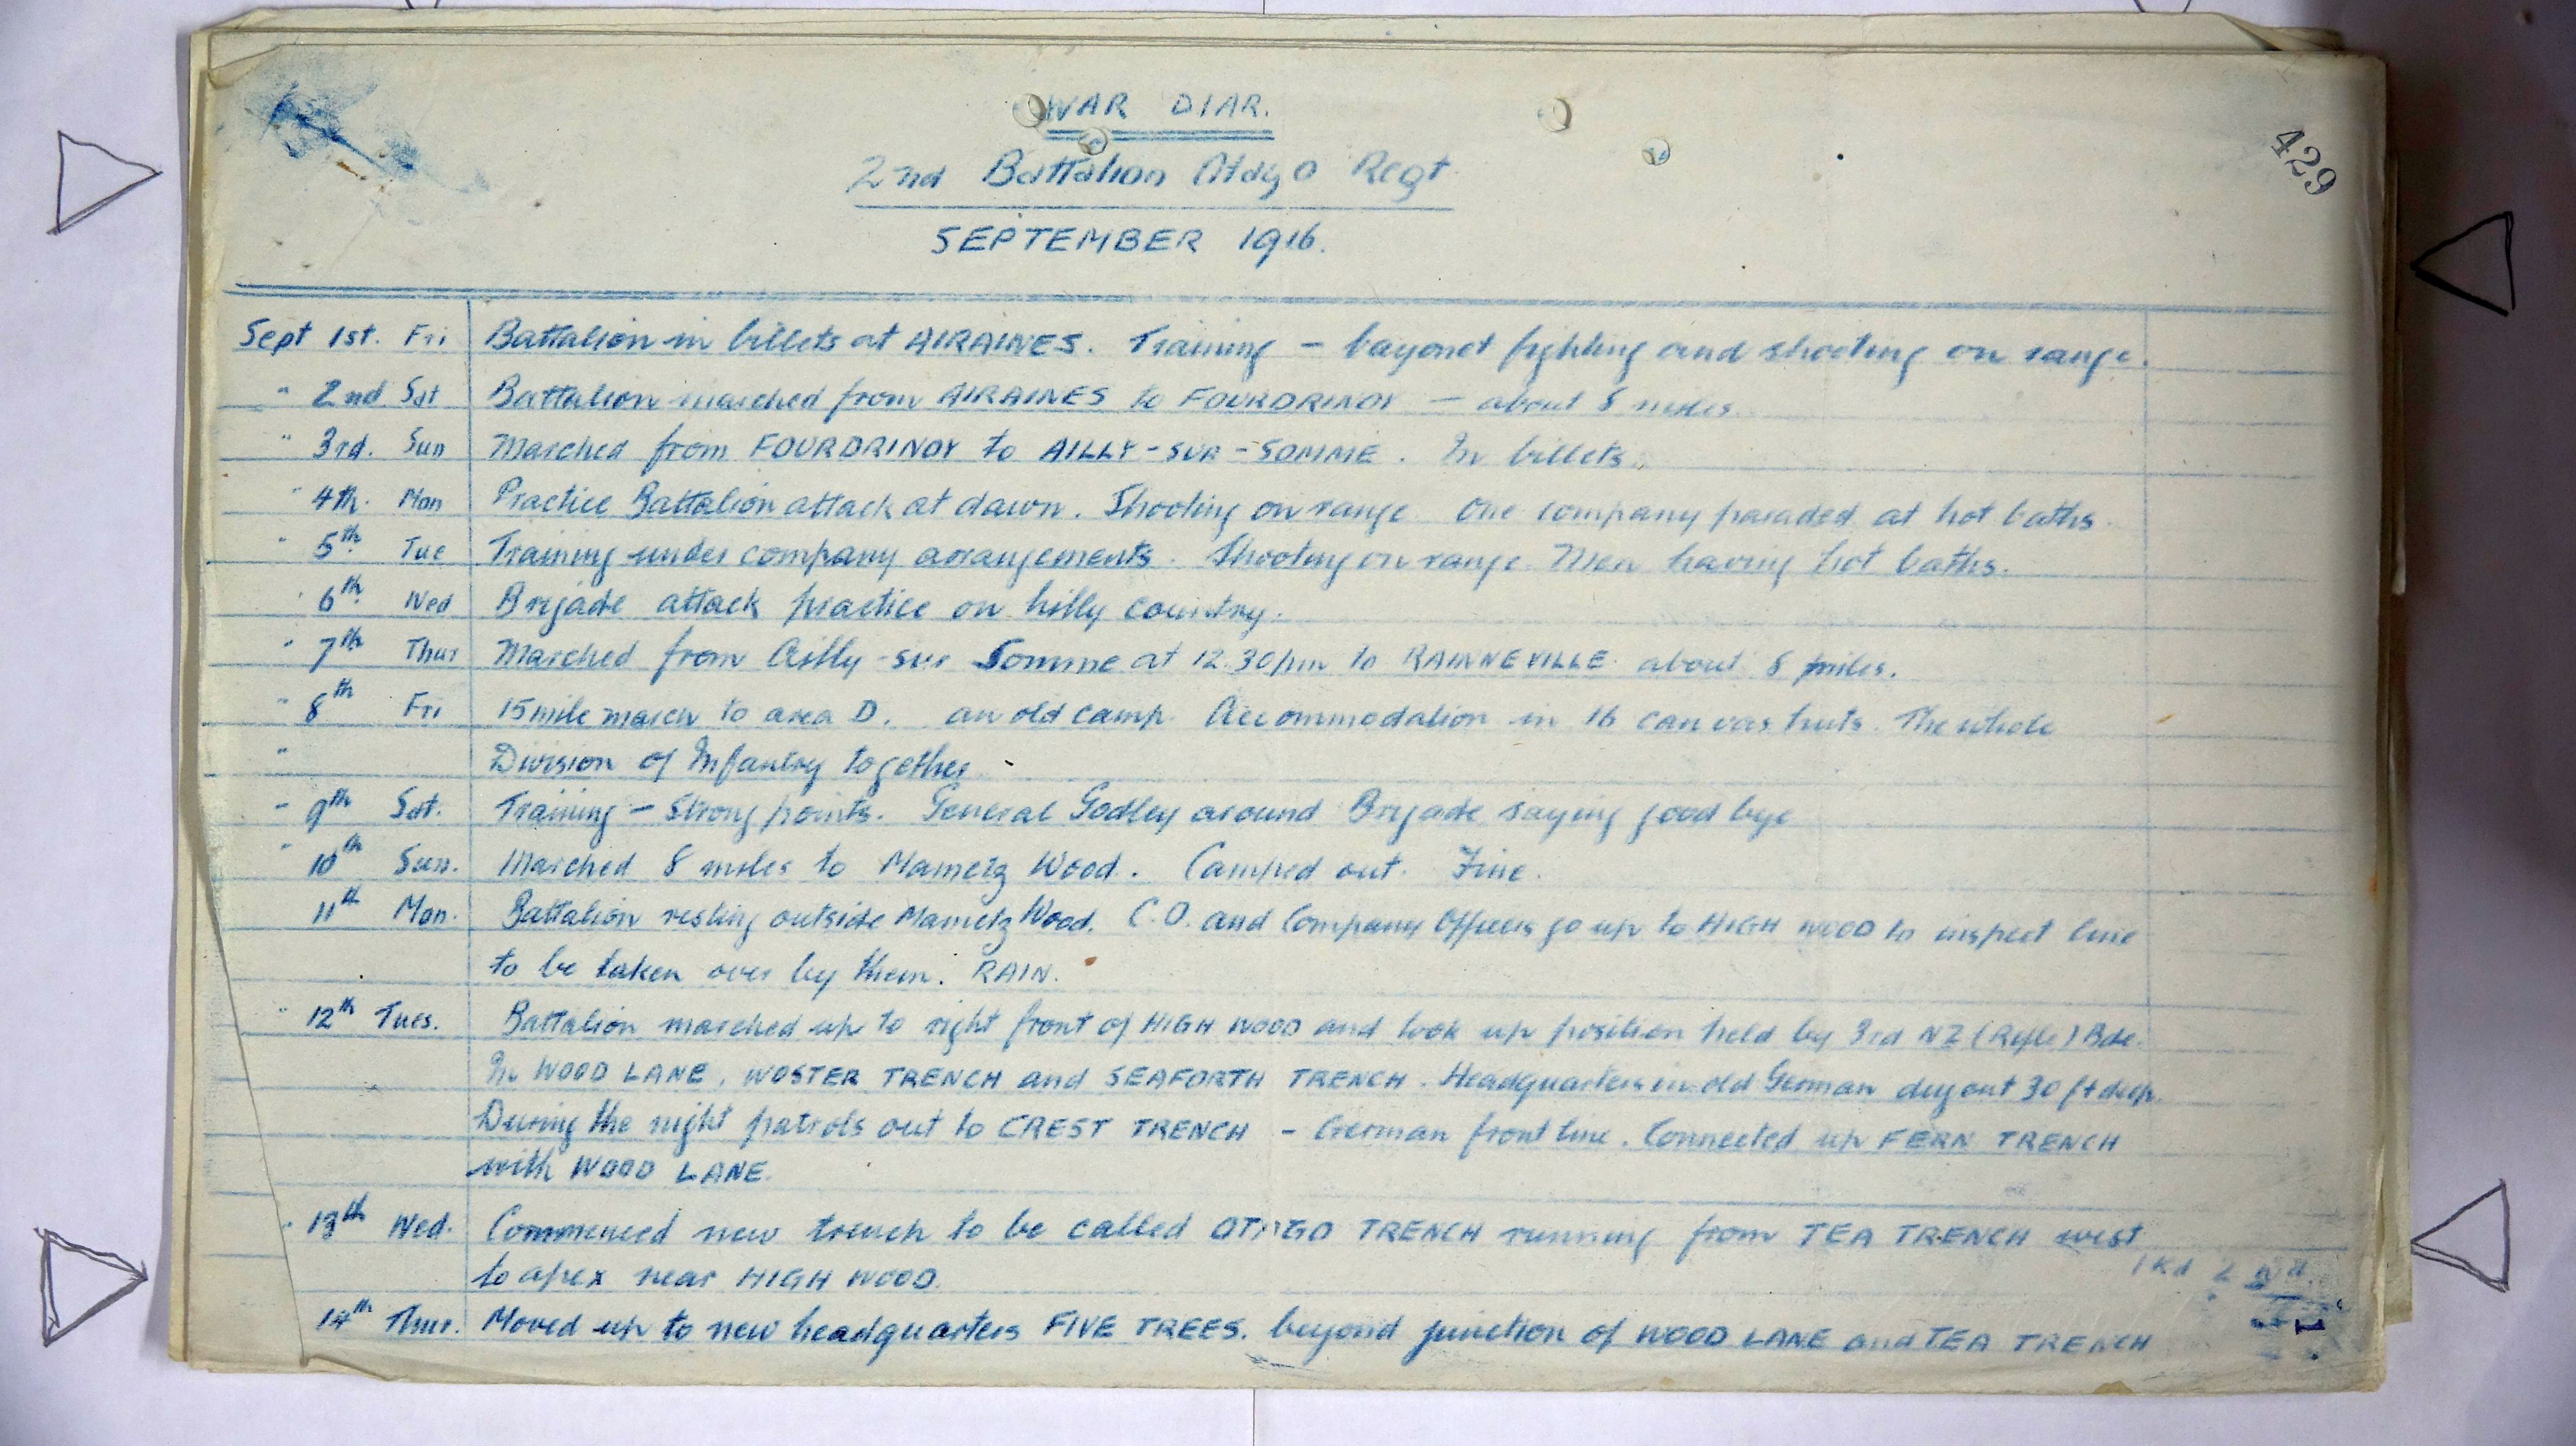 WAR DIAR.
2nd Battalion Otago Regt
SEPTEMBER 1916.
429
Sept 1st. Fri Battalion in billets at AIRAINES. Training - bayonet fighting and shooting on range.
" 2nd Sat Battalion marched from AIRAINES to FOURDRINOY - about 8 miles.
" 3rd. Sun Marched from FOURDRINOY to AILLY-SUR-SOMME. In billets.
" 4th. Mon Practice Battalion attack at dawn. Shooting on range One company paraded at hot baths.
" 5th. Tue Training under company arrangements. Shooting on range. Men having hot baths.
" 6th. Wed Brigade attack practice on hilly country.
" 7th Thur Marched from Ailly-sur Somme at 12.30pm to RAINNEVILLE about 8 miles.
" 8th Fri 15 mile march to area D. an old camp. Accommodation in 16 canvas huts. The whole
" Division of Infantry together.
" 9th Sat. Training - Strong points. General Godley around Brigade saying good bye
" 10th Sun. Marched 8 miles to Mametz Wood. Camped out. Fine.
11th Mon. Battalion resting outside Mametz Wood. C.O. and Company Officers go up to HIGH WOOD to inspect line
to be taken over by them. RAIN.
" 12th Tues. Battalion marched up to right front of HIGH WOOD and took up position held by 3rd NZ (Rifle) Bde.
In WOOD LANE, WOSTER TRENCH and SEAFORTH TRENCH. Headquarters in old German dugout 30 ft deep.
During the night patrols out to CREST TRENCH - German front line. Connected up FERN TRENCH
with WOOD LANE.
" 13th Wed. Commenced new trench to be called OTAGO TRENCH running from TEA TRENCH west
to apex near HIGH WOOD.
14th Thur. Moved up to new headquarters FIVE TREES. beyond junction of WOOD LANE and TEA TRENCH